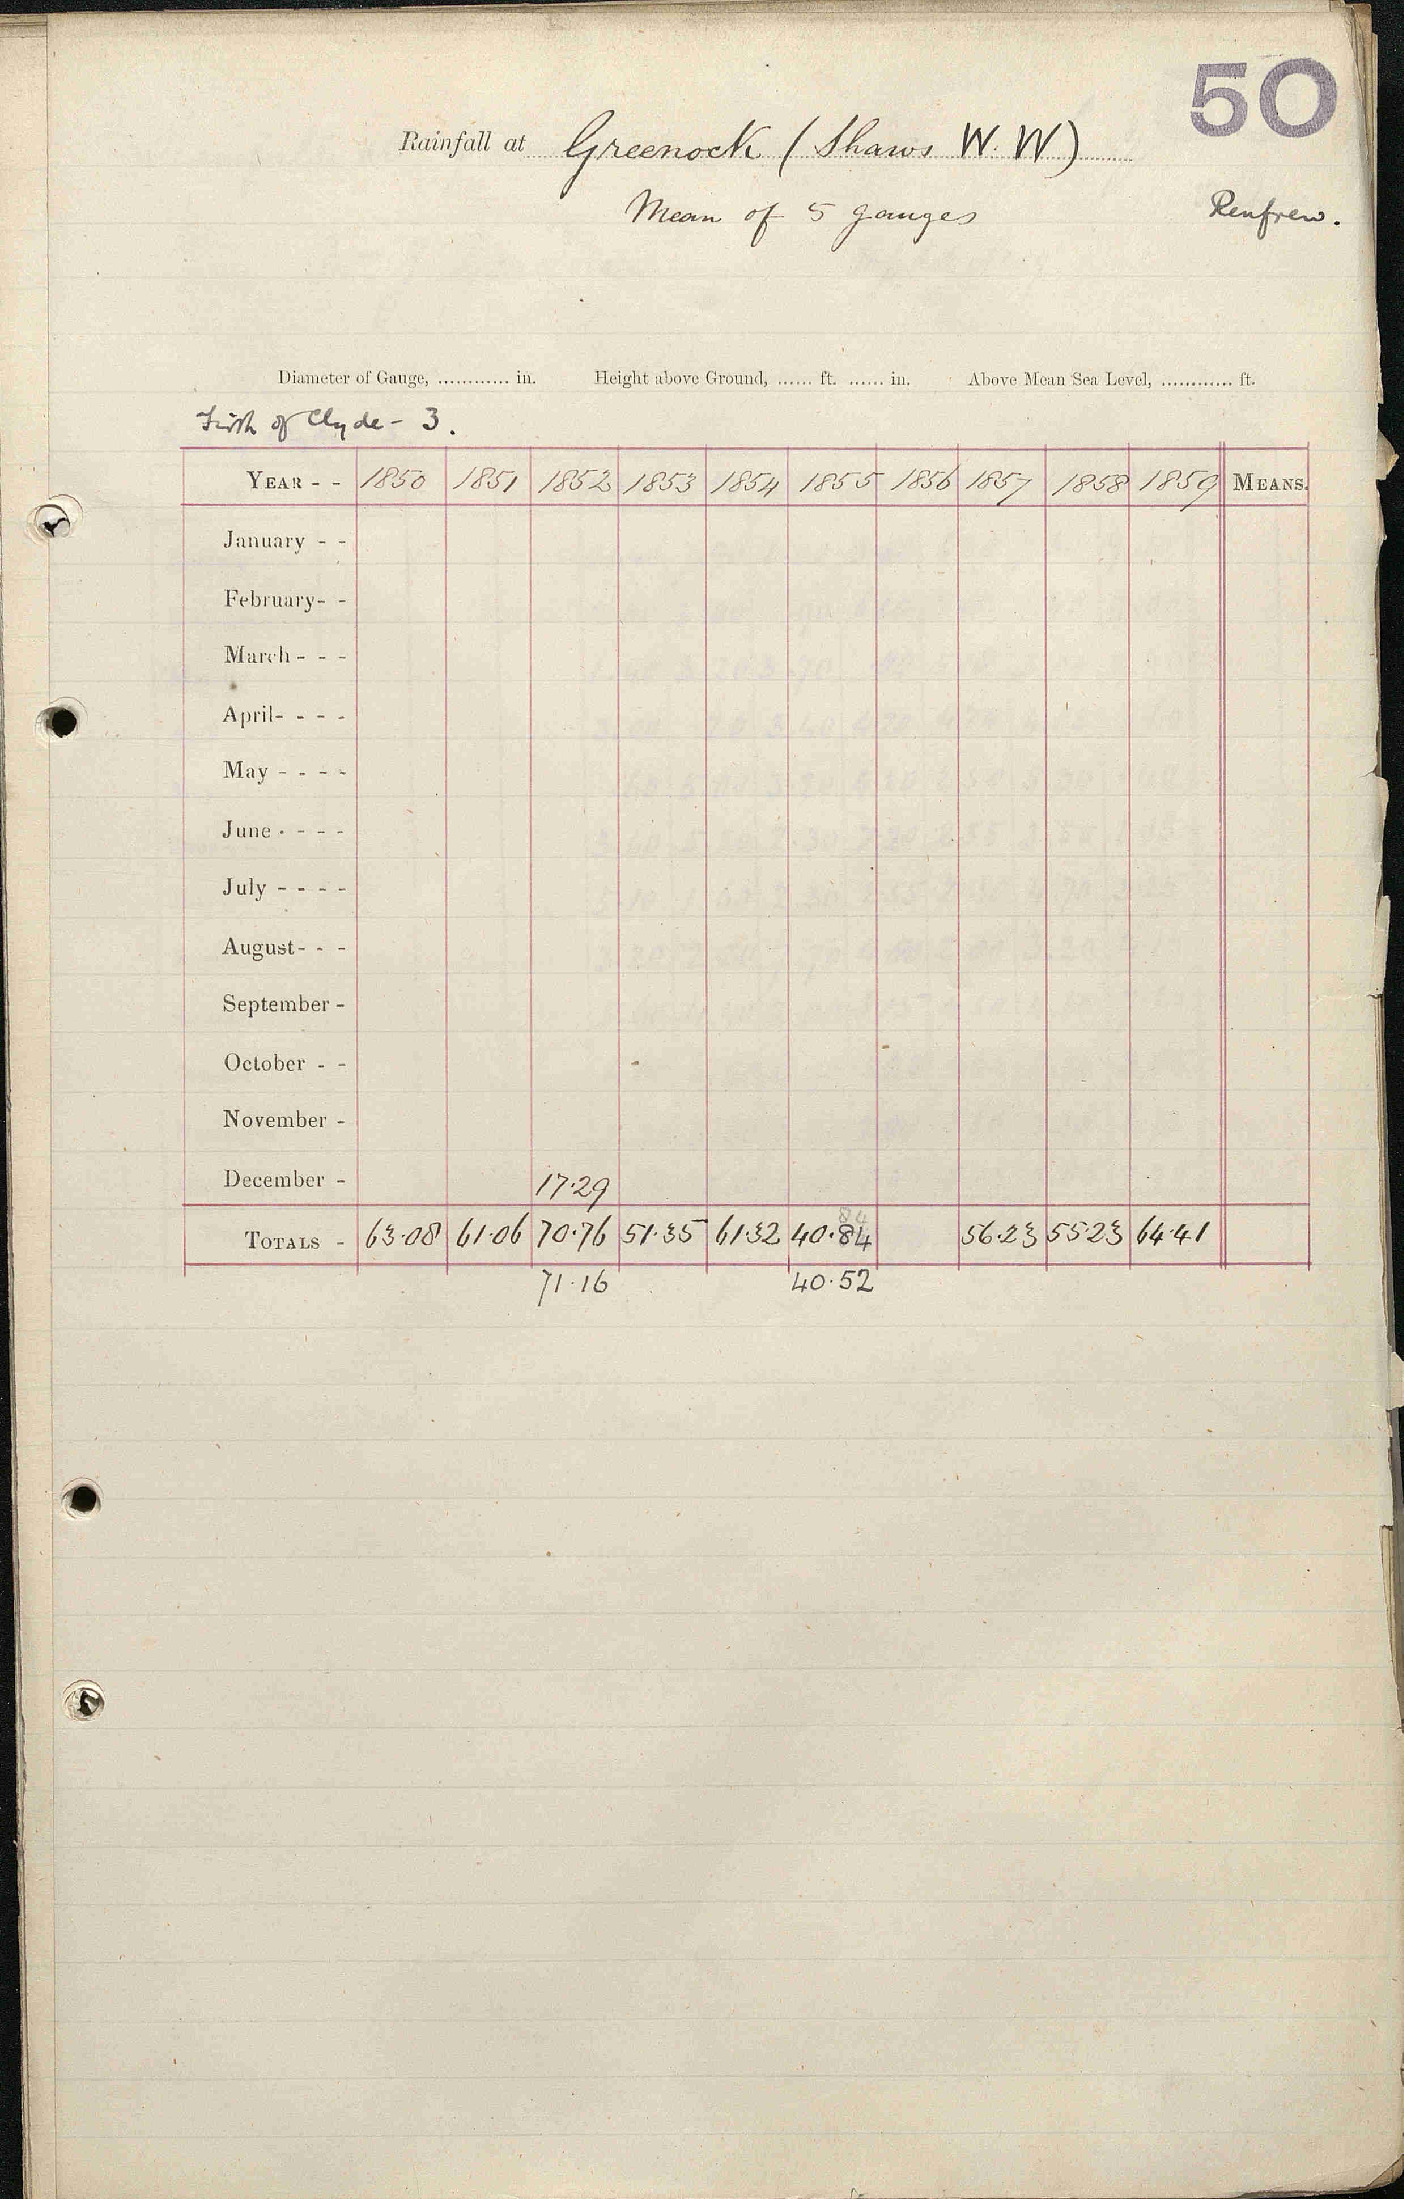 50
Rainfall at Greenock (Shaws W. W)
Mean of 5 gauges
Renfrew.
Diameter of Gauge, ............ in. Height above Ground, ...... ft. ...... in. Above Mean Sea Level, ............ ft.
Firth of Clyde - 3.
YEAR - - 1850 1851 1852 1853 1854 1855 1856 1857 1858 1859 MEANS.
January - -
February - -
March - - -
April - - - -
May - - - -
June - - - -
July - - - -
August - - -
September -
October - -
November -
December - 17.29
84
TOTALS - 63.08 61.06 70.76 51.35 61.32 40.84 56.23 55.23 64.41
71.16 40.52